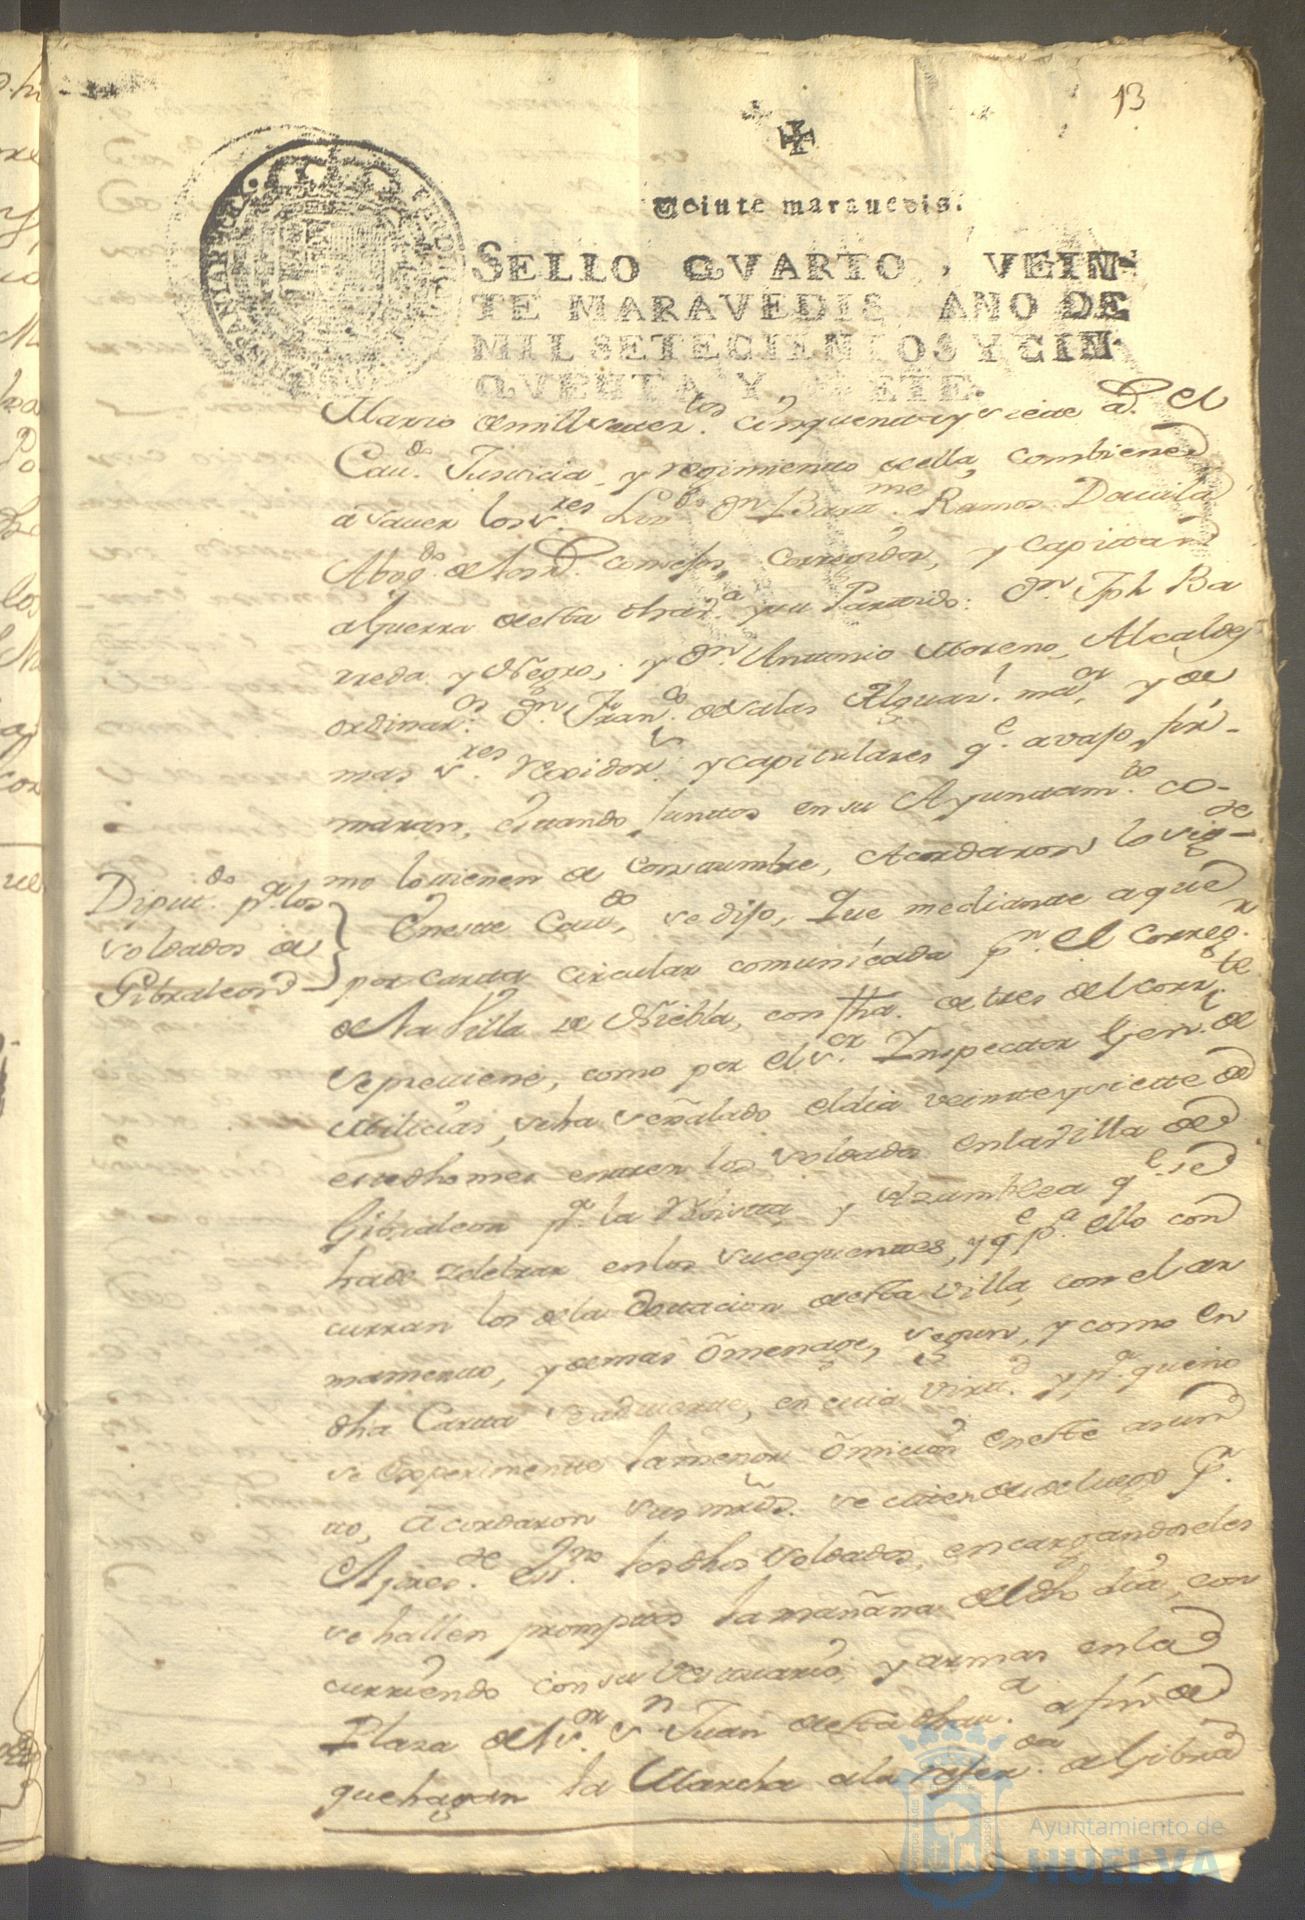 13
Veinte marauedis.
SELLO QVARTO, VEIN-
TE MARAVEDIS, AÑO DE
MIL SETECIENTOS Y CIN-
QVENTA Y SIETE.
Marzo de mill setez.tos cinquenta y siete a.s el
Cau.do Justicia, y regimiento de ella, combiene
a saver los s.res Lizd.o Dn Barme. Ramos Davila
Abog.do de los R.s consejos, corregidor, y capitan
a Guerra de esta dha v.a y su Partido: Dn. Jph Ba
rreda y Negro; y Dn. Antonio Moreno, Alcaldes
ordinar.os Dn. Fran.co de Salas Alguaz.l ma.or y de
mas s.res rexidor.s y capitulares q.e avajo fir-
maran, estando juntos en su Ayuntam.to co-
mo lo tienen de constumbre, Acordaron lo sig.te
Diput.do p.a los
soldados de
Gibraleon
En este Cau.do se dijo, Que mediante a que
por carta circular comunicada p.r el Correg.r
de la Villa de Niebla, con fha. de tres del corr.te
se previene, como por el s.or Inspector Gen.l de
Milicias, se ha señalado el dia veinte y siete de
este dho mes entren los soldados en la Villa de
Gibraleon p.a la Revista y Azamblea q.e se
ha de zelebrar en los sucequentes, y q.e p.a ello con
curran los de la dotacion de esta villa, con el ar
mamento, y demas omenage, segun, y como en
dha Carta se advierte, en cuia virtu.d y p.a que no
se experimente la menor omicion en este asun
to, Acordaron sus mrds. se citen desde luego p.r
los dhos soldados, encargandoseles
se hallen promptos la mañana del dho dia, con
curriendo con su vestuario, y armas en la
Plaza del s.or Sn Juan de esta dha v.a a fin de
que hagan la Marcha a la refer.da a Gibra
Ayuntamiento de
HUELVA